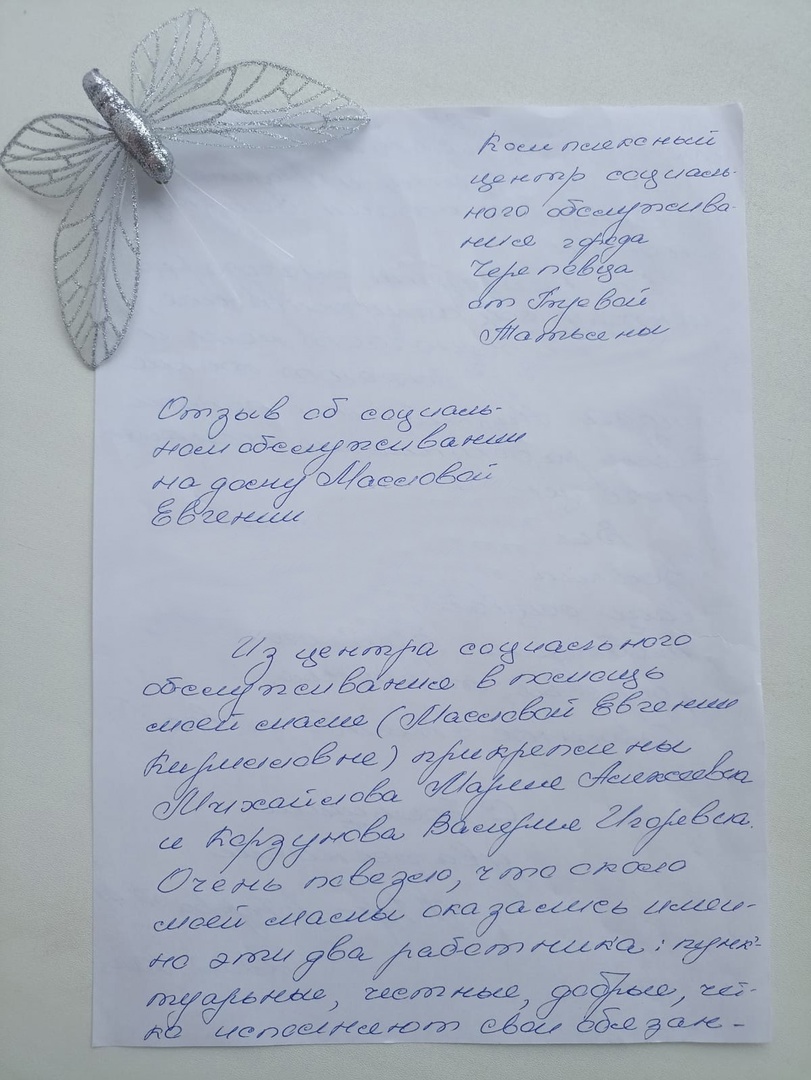 Комплексный
центр социаль-
ного обслужива-
ния города
Череповца
от Гуевой
Татьяны
Отзыв об социаль-
ном обслуживании
на дому Масловой
Евгении
Из центра социального
обслуживания в помощь
моей маме (Масловой Евгении
Кирилловне) прикреплены
Михайлова Мария Алексеевна
и Корзунова Валерия Игоревна.
Очень повезло, что около
моей мамы оказались имен-
но эти два работника: пунк-
туальные, честные, добрые, чёт-
ко исполняют свои обязан-